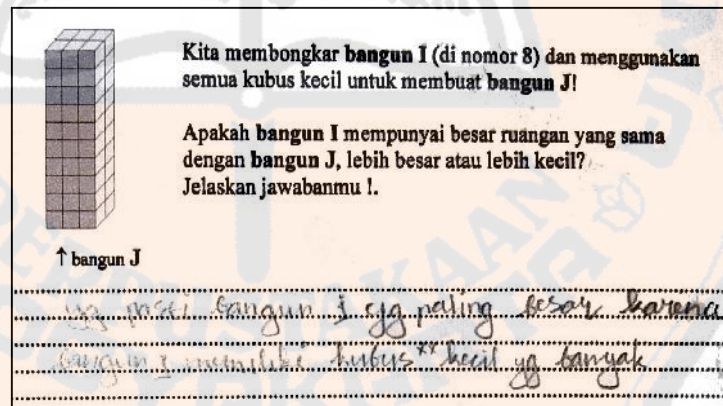 Kita membongkar bangun I (di nomor 8) dan menggunakan
semua kubus kecil untuk membuat bangun J!
Apakah bangun I mempunyai besar ruangan yang sama
dengan bangun J, lebih besar atau lebih kecil?
Jelaskan jawabanmu !.
↑ bangun J
yg pasti bangun I yg paling besar karena
bangun I memiliki kubus** kecil yg banyak